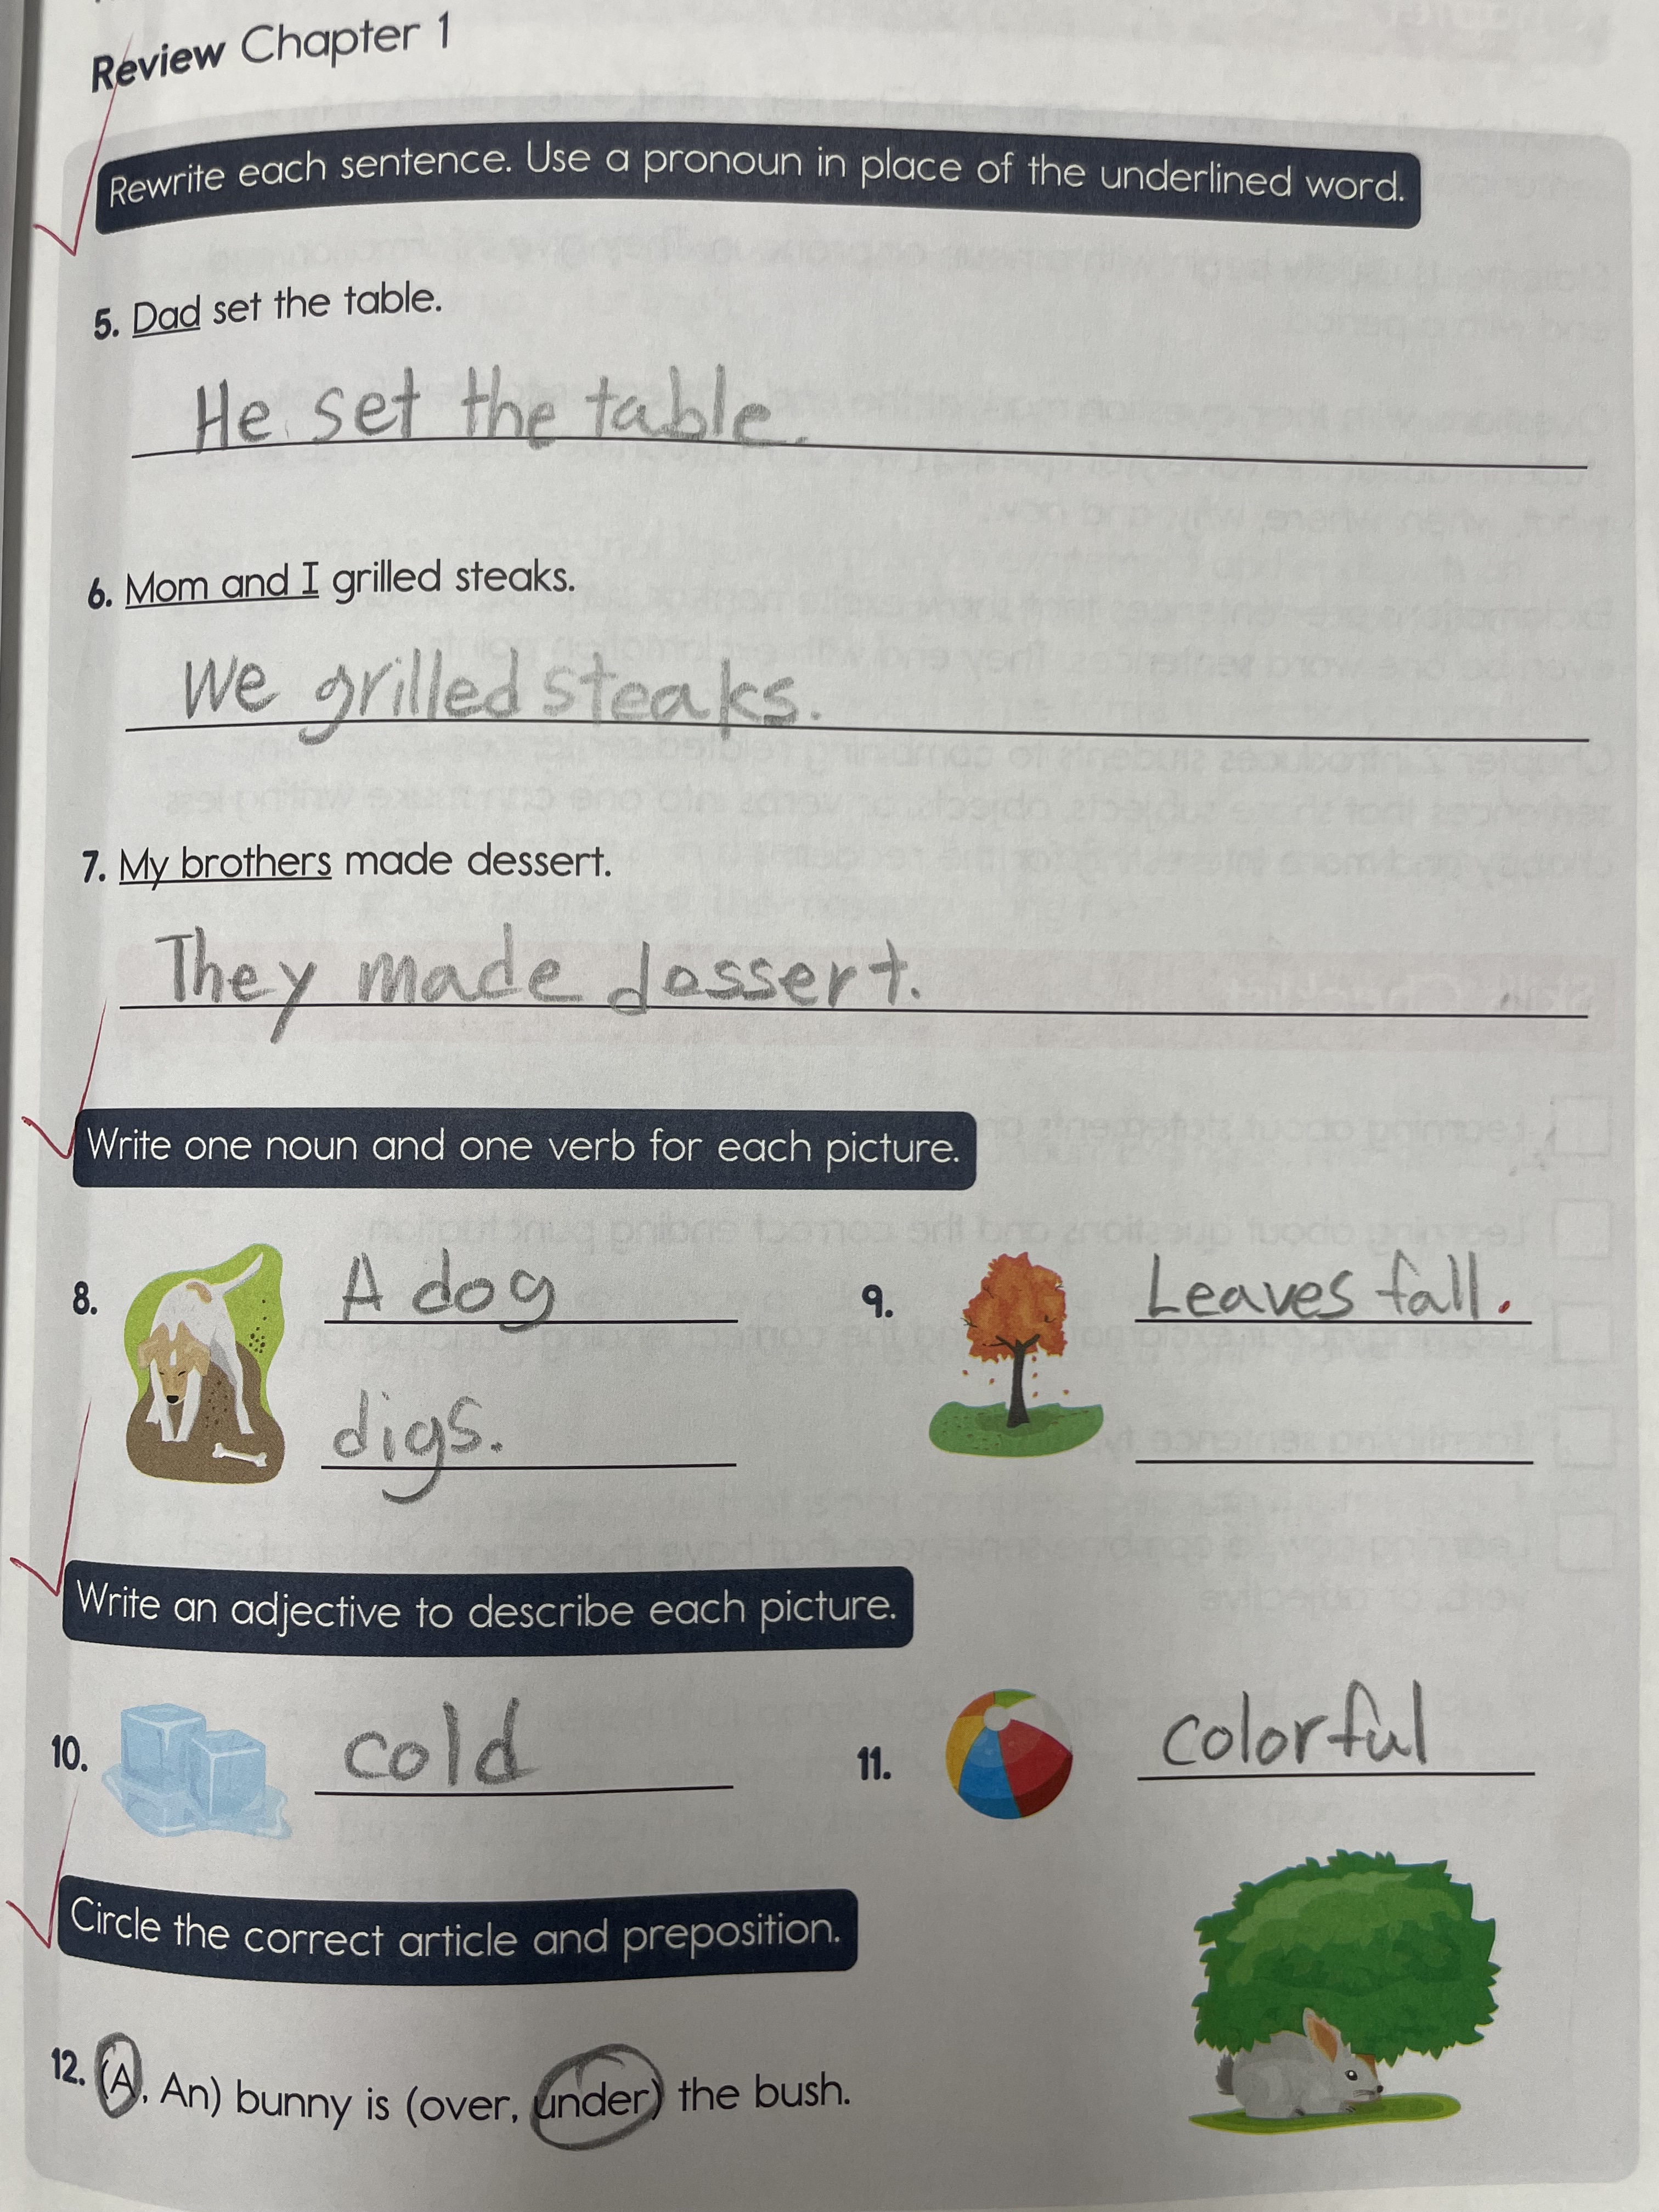 Review Chapter 1
Rewrite each sentence. Use a pronoun in place of the underlined word.
5. Dad set the table.
He set the table.
6. Mom and I grilled steaks.
We grilled steaks.
7. My brothers made dessert.
They made dossert.
Write one noun and one verb for each picture.
8. A dog
digs.
9. Leaves fall.
Write an adjective to describe each picture.
10. cold
11. colorful
Circle the correct article and preposition.
12. (A, An) bunny is (over, under) the bush.